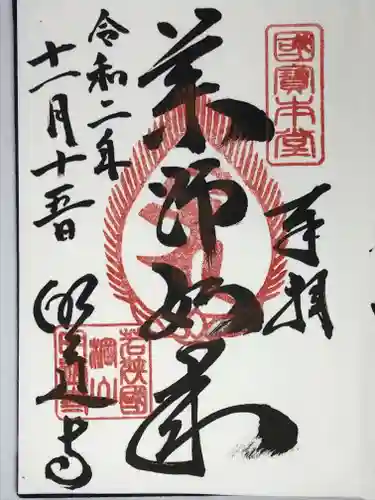 國寶本堂
奉拝
薬師如来
令和二年
十一月十五日
明通寺
若狭國
棡山